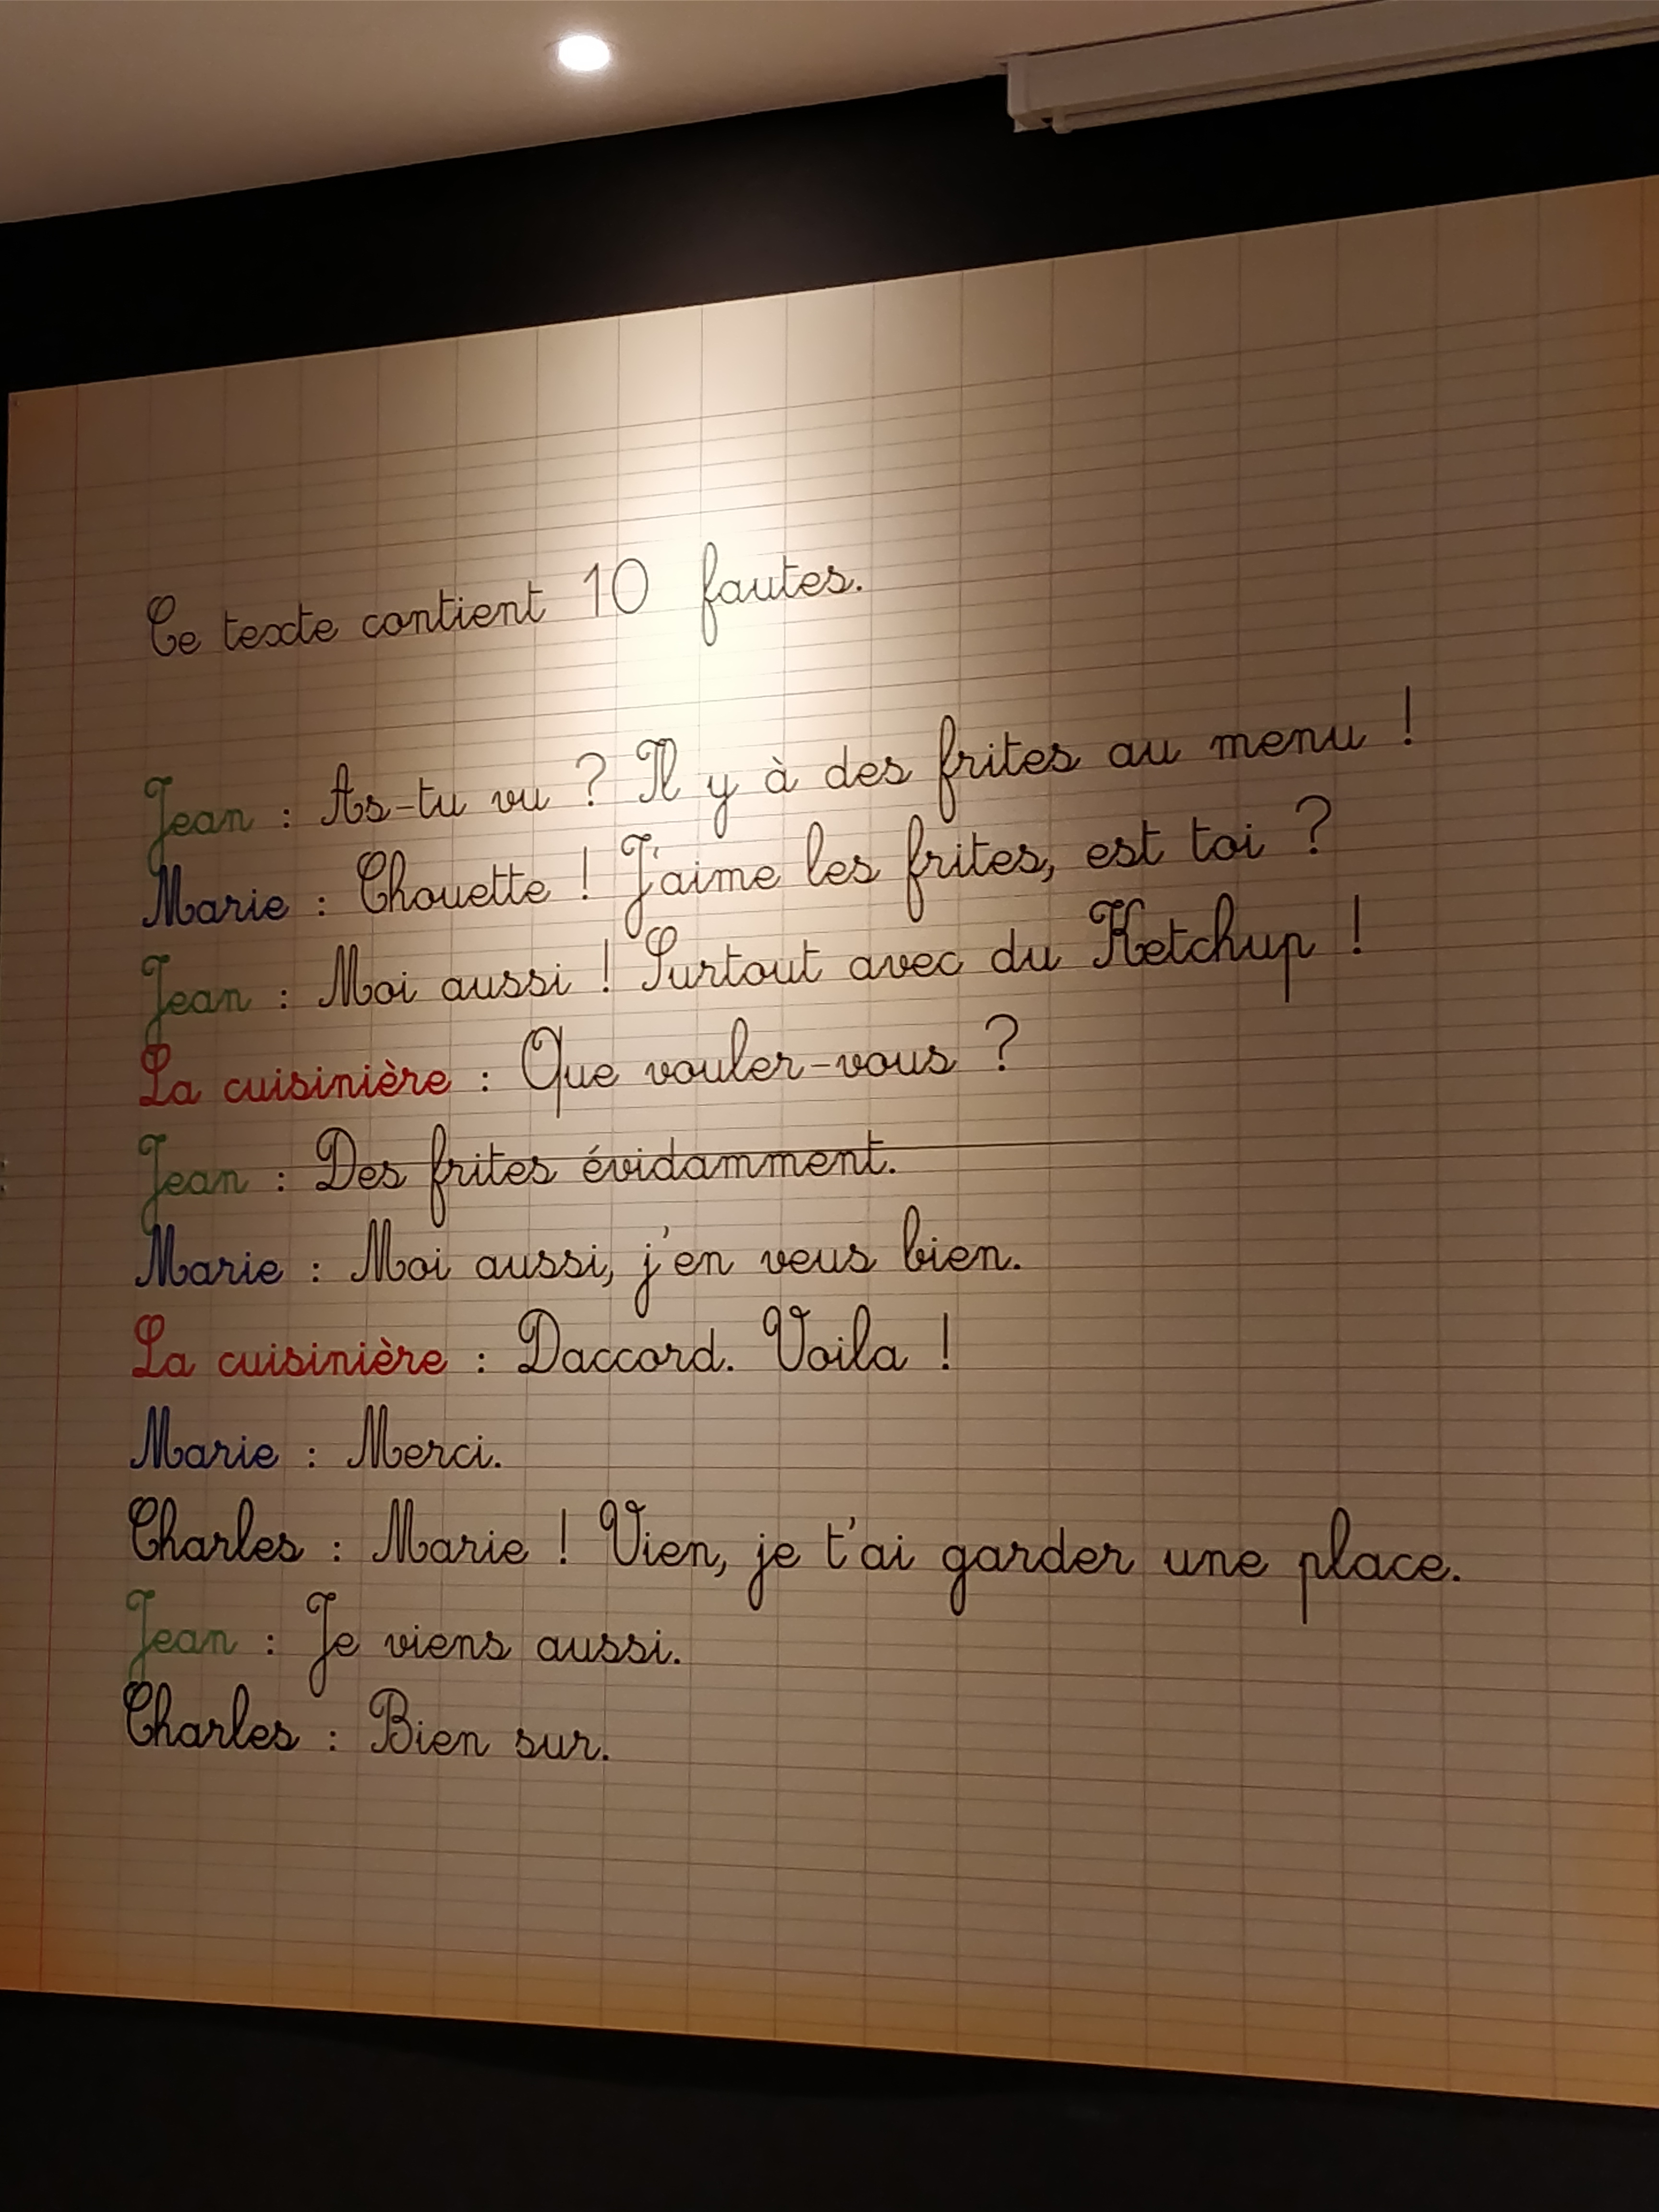 Ce texte contient 10 fautes.
Jean : As-tu vu ? Il y à des frites au menu !
Marie : Chouette ! J'aime les frites, est toi ?
Jean : Moi aussi ! Surtout avec du Ketchup !
La cuisinière : Que vouler-vous ?
Jean : Des frites évidamment.
Marie : Moi aussi, j'en veus bien.
La cuisinière : Daccord. Voila !
Marie : Merci.
Charles : Marie ! Vien, je t'ai garder une place.
Jean : Je viens aussi.
Charles : Bien sur.